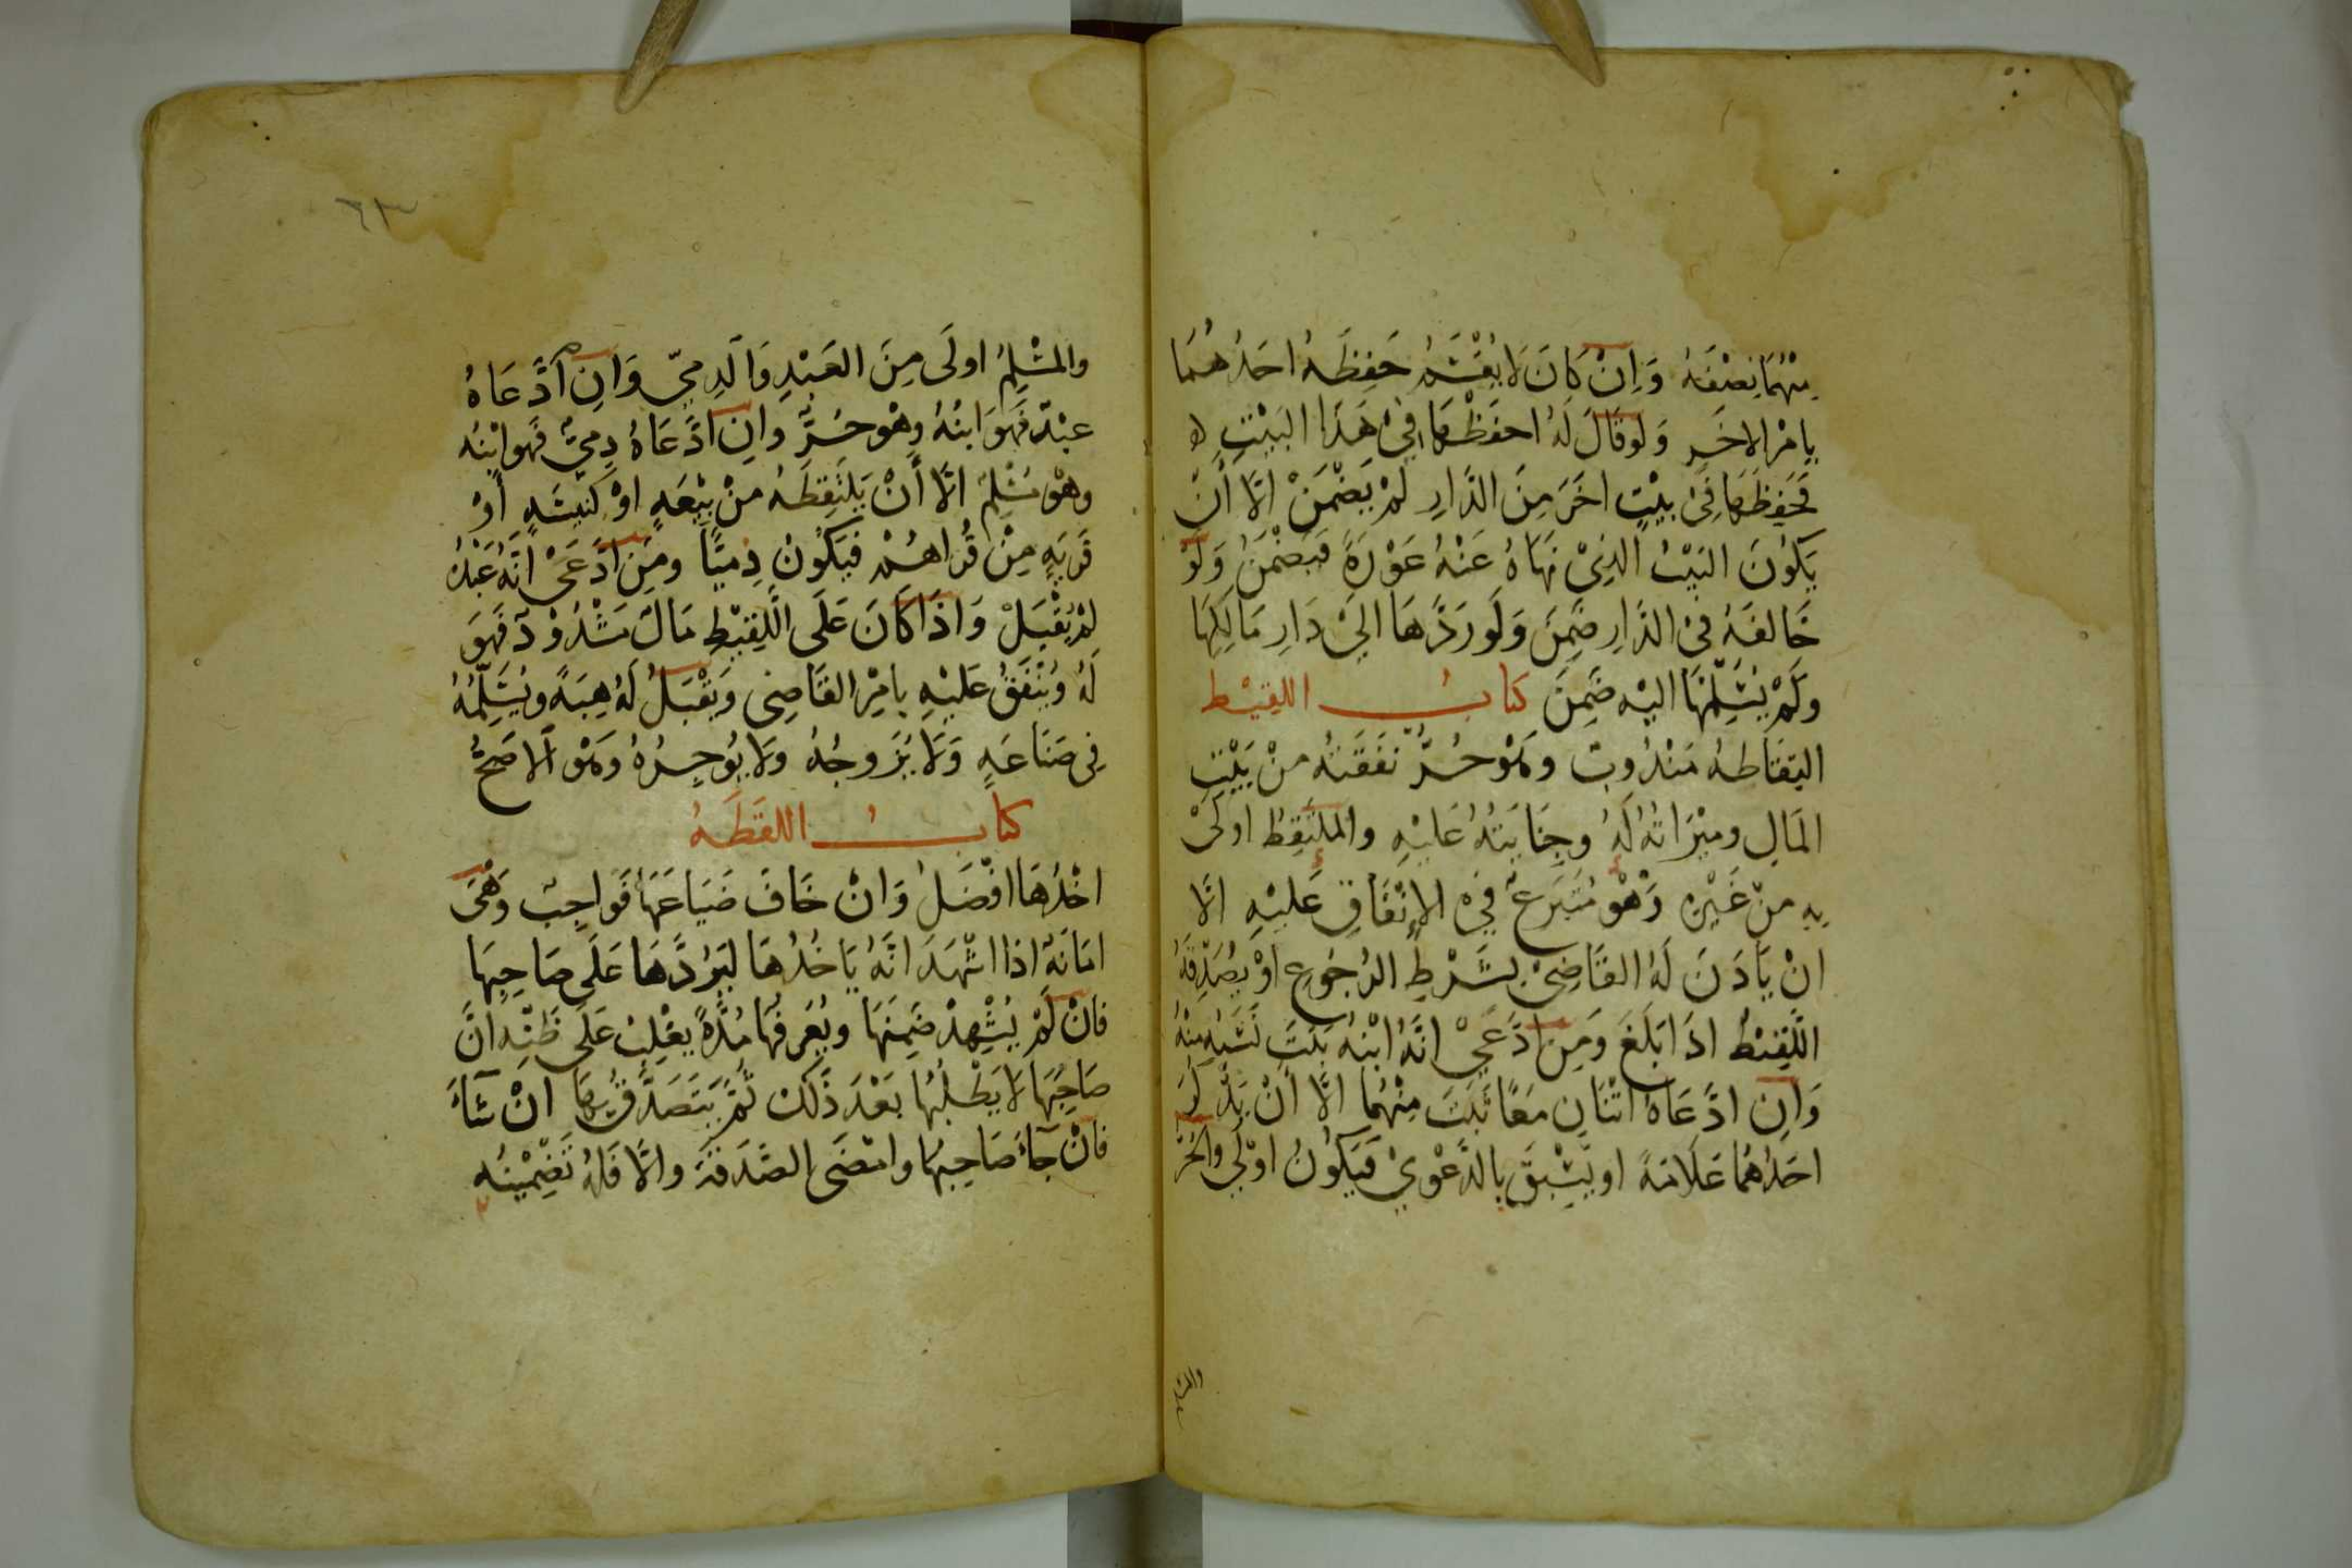 مِنْهُمَا نِصْفَهُ وَاِنْ كَانَ لَا يُقْسَمُ حَفِظَهُ اَحَدُهُمَا
بِاَمْرِ الاٰخَرِ وَلَوْ قَالَ لَهُ احْفَظْهَا فِىْ هَذَا البَيْتِ
فَحَفِظَهَا فِىْ بَيْتٍ اٰخَرَ مِنَ الدَّارِ لَمْ يَضْمَنْ اِلَّا أَنْ
يَكُوْنَ البَيْتُ الَّذِىْ نَهَاهُ عَنْهُ عَوْرَةً فَيَضْمَنُ وَلَوْ
خَالَفَهُ فِى الدَّارِ ضَمِنَ وَلَوْ رَدَّهَا اِلَىْ دَارِ مَالِكِهَا
وَلَمْ يُسَلِّمْهَا اِلَيْهِ ضَمِنَ كتابُ اللقيْط
التِقَاطُهُ مَنْدُوبٌ وَهُوَ حُرٌّ نَفَقَتُهُ مِنْ بَيْتِ
المَالِ وَمِيْرَاثُهُ لَهُ وَجِنَايَتُهُ عَلَيْهِ وَالمُلْتَقِطُ اَوْلَىْ
بِهِ مِنْ غَيْرِهِ وَهُوَ مُتَبَرِّعٌ فِى الاِنْفَاقِ عَلَيْهِ اِلَّا
اَنْ يَاْذَنَ لَهُ القَاضِىْ بِشَرْطِ الرُّجُوعِ اَوْ يُصَدِّقَهُ
اللَّقِيْطُ اِذَا بَلَغَ وَمَنِ ادَّعَىْ اَنَّهُ ابْنُهُ ثَبَتَ نَسَبُهُ مِنْهُ
وَاِنِ ادَّعَاهُ اثْنَانِ مَعًا ثَبَتَ مِنْهُمَا اِلَّا أَنْ يَذْكُرَ
اَحَدُهُمَا عَلَامَةً اَوْ يَسْبِقَ بِالدَّعْوِىْ فَيَكُوْنُ اَوْلَى وَالحُرُّ
والمسلم
٦٣
وَالمُسْلِمُ اَوْلَى مِنَ العَبْدِ وَالذِمىّ وَاِنِ ادَّعَاهُ
عَبْدٌ فَهُوَ ابْنُهُ وَهُوَ حُرٌّ وَاِنِ ادَّعَاهُ ذِمِّىٌّ فَهُوَ ابْنُهُ
وَهُوَ مُسْلِمٌ اِلَّا أَنْ يَلْتَقِطَهُ مِنْ بِيْعَةٍ اَوْ كَنِيْسَةٍ أَوْ
قَرْيَةٍ مِنْ قُرَاهُمْ فَيَكُوْنُ ذِمِيًّا وَمَنِ ادَّعَىْ اَنَّهُ عَبْدُهُ
لَمْ يُقْبَلْ وَاِذَا كَانَ عَلَى اللَّقِيْطِ مَالٌ مَشْدُوْدٌ فَهُوَ
لَهُ وَيُنْفَقُ عَلَيْهِ بِاَمْرِ القَاضِى وَيَقْبَلُ لَهُ هِبَةً وَيُسَلِّمُهُ
فِى صَنَاعَةٍ وَلَا يُزَوِجُهُ وَلَا يُوْجِرُهُ وَهُوَ الاَصَحُّ
كتابُ اللقَطَهُ
اَخْذُهَا اَفْضَلُ وَاِنْ خَافَ ضَيَاعَهَا فَوَاجِبٌ وَهْىَ
اَمَانَةٌ اِذَا اَشْهَدَ اَنَّهُ يَاْخُذُهَا لِيَرُدَّهَا عَلَى صَاحِبِهَا
فَاِنْ لَمْ يُشْهِدْ ضَمِنَهَا وَيُعَرِّفُهَا مُدَّةً يَغْلِبُ عَلَى ظَنِّهِ اَنَّ
صَاحِبَهَا لَا يَطْلُبُهَا بَعْدَ ذَلِكَ ثُمَّ يَتَصَدَّقُ بِهَا اِنْ شَآءَ
فَاِنْ جَآءَ صَاحِبُهَا وَامْضَى الصَّدَقَةَ وَاِلَّا فَلَهُ تَضْمِيْنُهُ